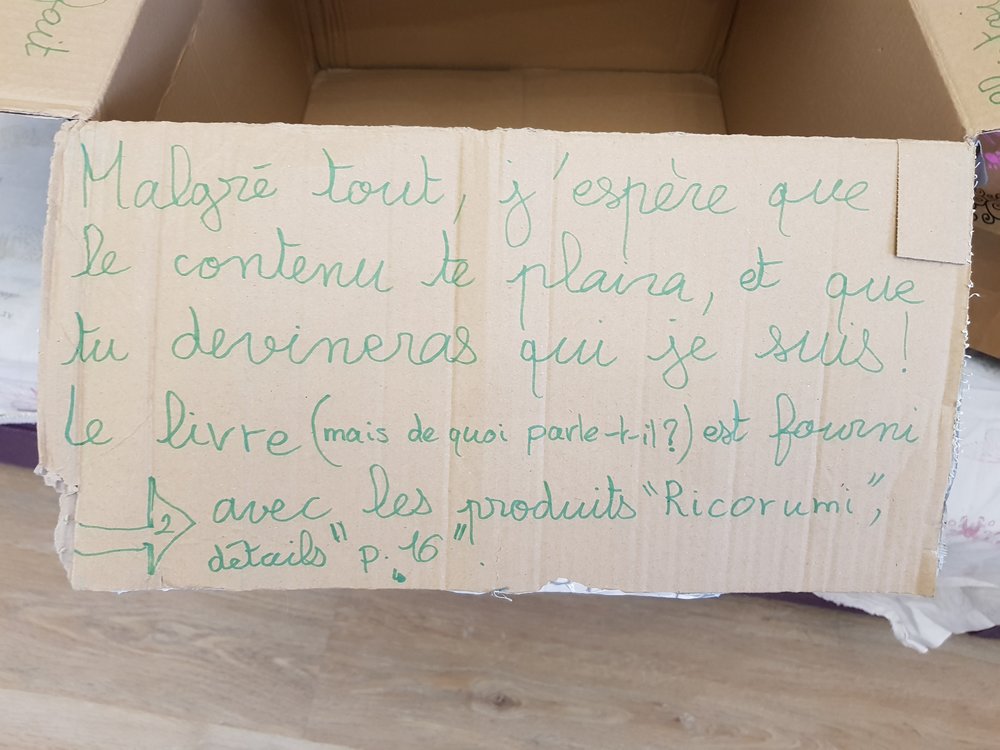 fait
Malgré tout, j'espère que
le contenu te plaira, et que
tu devineras qui je suis!
Le livre (mais de quoi parle-t-il?) est fourni
2 avec les produits "Ricorumi",
détails "p. 16".